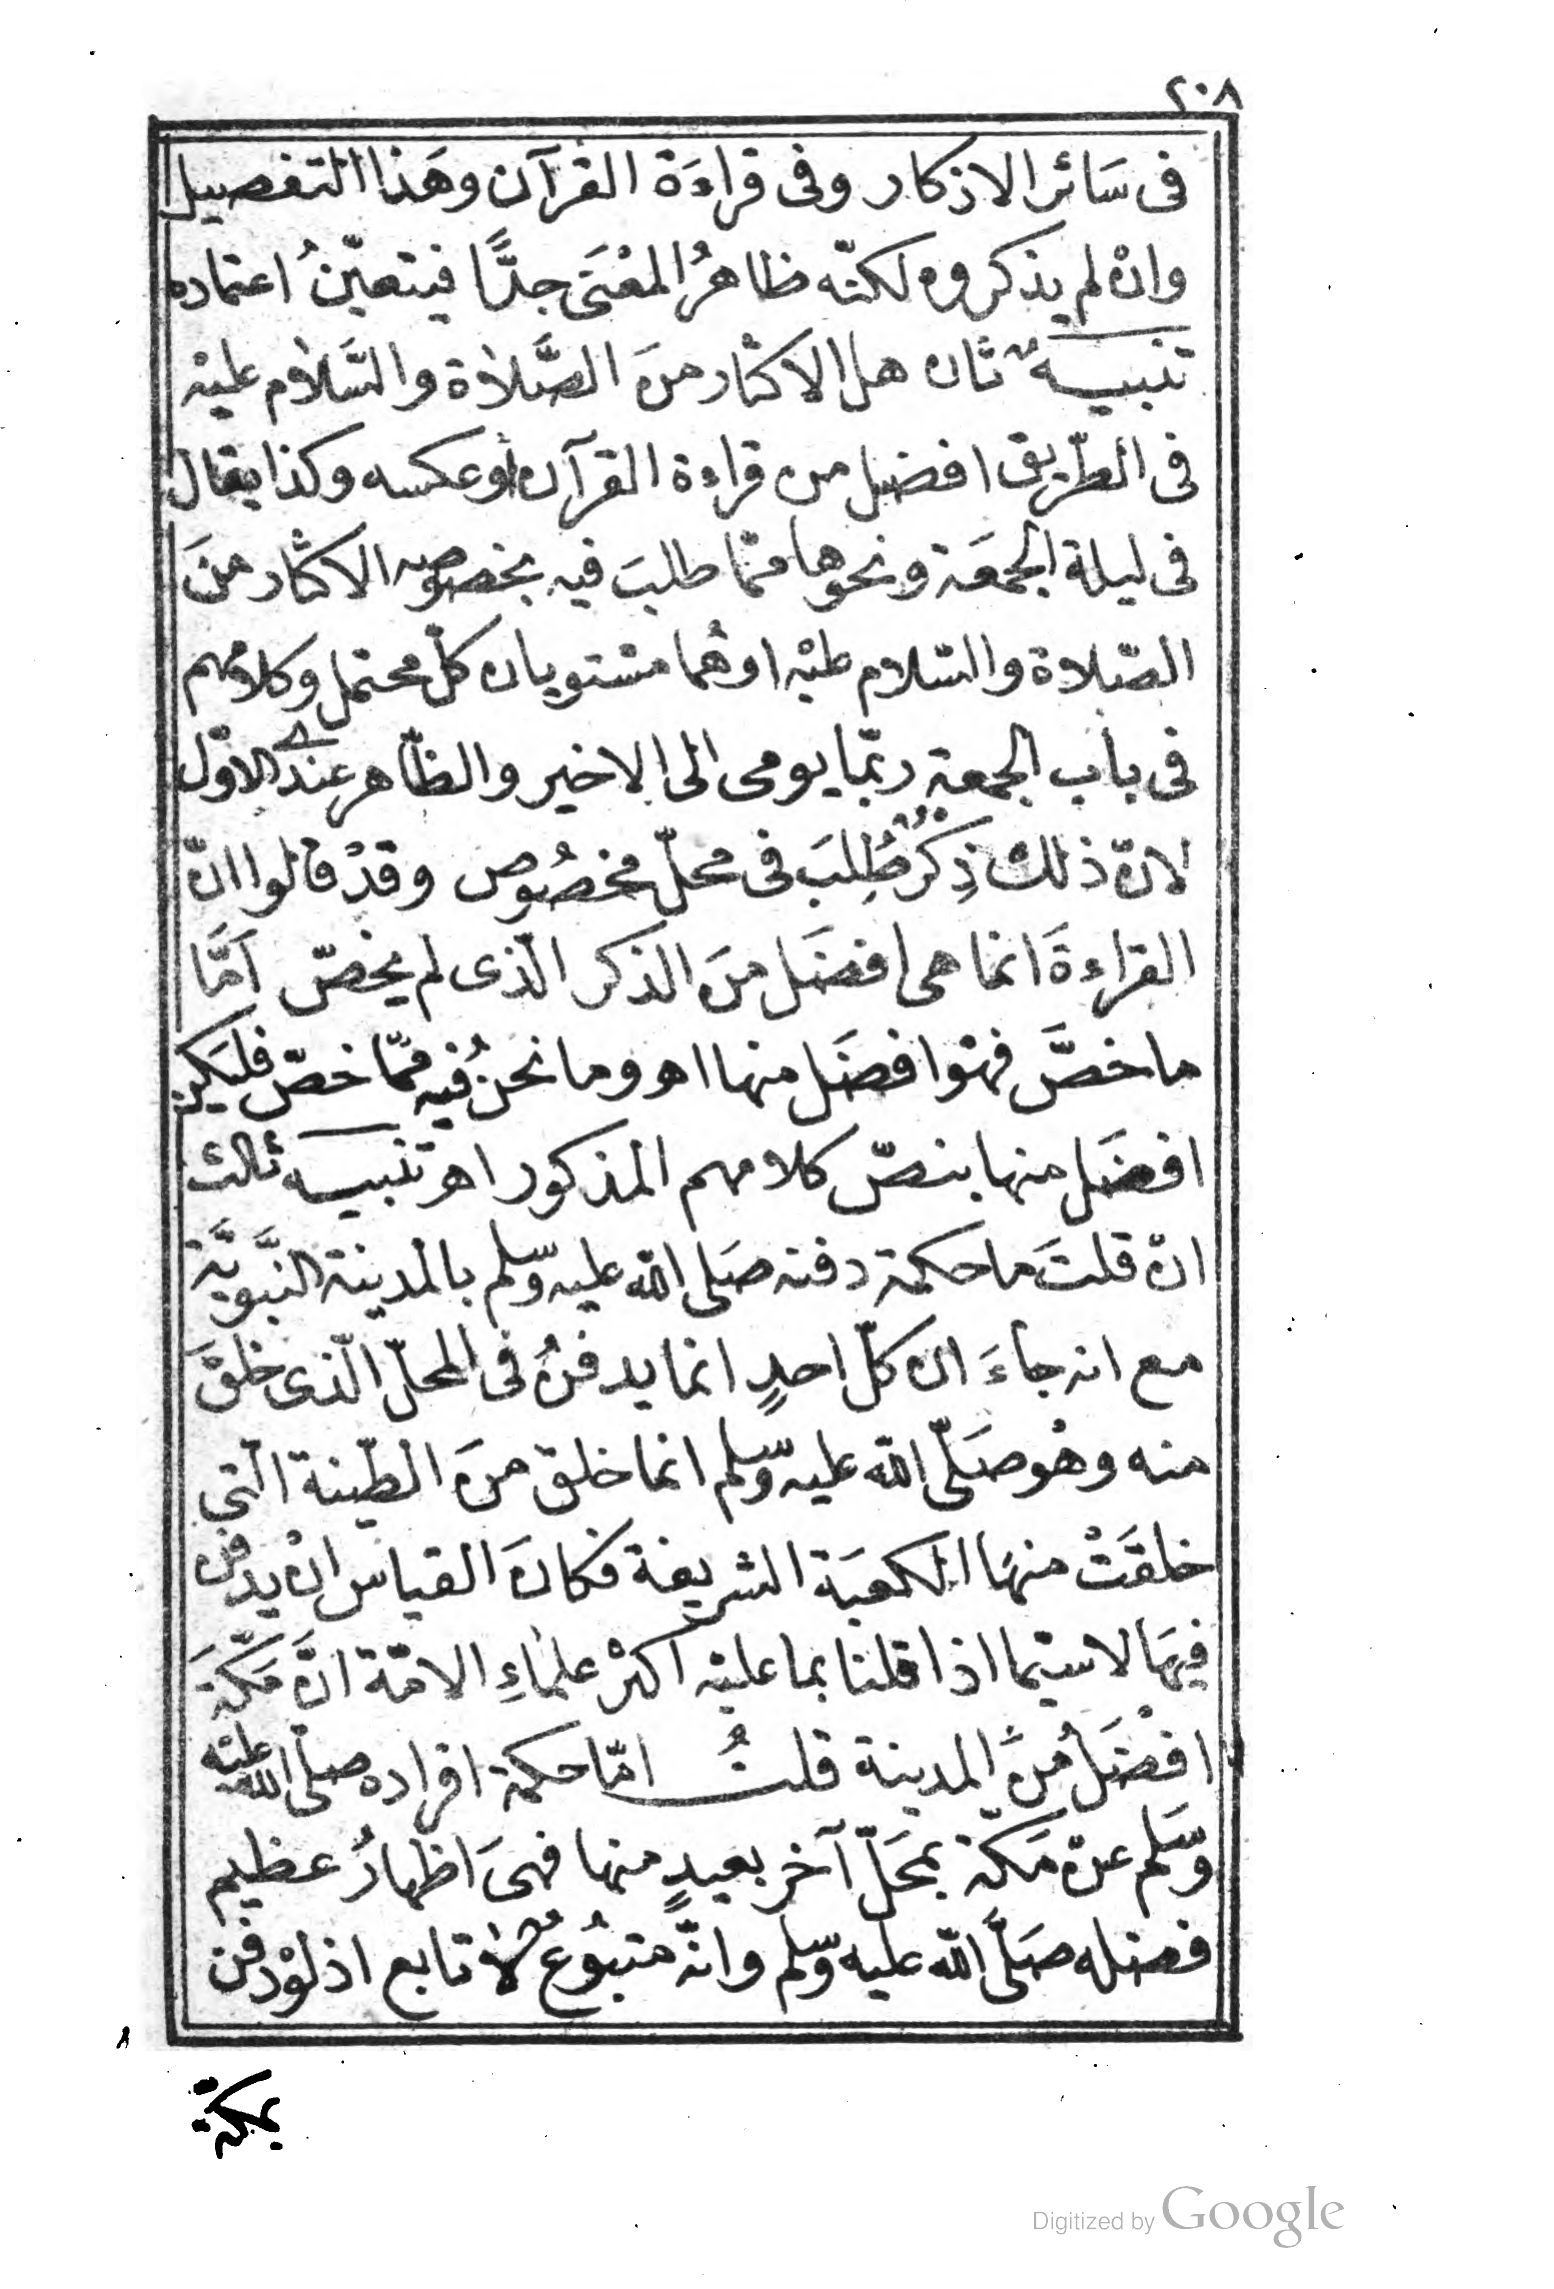 ٢٠٨
فى سَائر الاذكار وفى قراءَة القرآن وهَذا التفصيل
وانْ لم يذكروه لكنّه ظاهرُ المعْنَى جدًّا فيتعيّنُ اعتماده
تنبيـــه ثان هل الاكثار منَ الصَّلاة والسَّلام عليْه
فى الطّريق افضل من قراءة القرآن أوعكسه وكذا يقال
فى ليلة الجمعَة ونحوها ممّا طلبَ فيه بخصوصه الاكثار منَ
الصّلاة والسّلام عليْه اوهُما مسْتويان كلّ محتمل وكلامُهم
فى باب الجمعة ربّما يومى الى الاخير والظّاهر عندى الاوّل
لانّ ذلك ذِكرٌ طُلِبَ فى محلّ مخصُوص وقدْ قالوا انّ
القراءةَ انما هى افضَل منَ الذكر الّذى لم يخصّ امَّا
ما خصَّ فهْوا فضَل منها اهـ وما نحنُ فيه ممّا خصّ فليكن
افضَل منها بنصّ كلامهم المذكور اهـ تنبيـــه ثالث
انْ قلتَ ما حكمة دفنه صَلى الله عليه وسّلم بالمدينة النّبويَّة
مع انه جاءَ ان كلّ احدٍ انما يدفنُ فى المحلّ الّذى خلقَ
منه وهُو صَلّى الله عليه وسّلم انما خلق منَ الطّينة الّتى
خلقَتْ منهَا الكعبَة الشريفة فكانَ القياس انْ يدفن
فيهَا لاسيّما اذا قلنا بما عليْه اكثرْ علمَاءِ الامّة انَّ مَكّةَ
افضَلُ منَ المدينة قلتُ امّا حكمة افراده صلّى الله عليْه
وسَلم عنْ مَكّة بمحَلّ آخر بعيدٍ منها فهىَ اظهارُ عظيم
فضله صَلَّى الله عليه وسّلم وانّه متبُوعٌ لا تابع اذ لوْ دفن
٨
بمكة
Digitized by Google